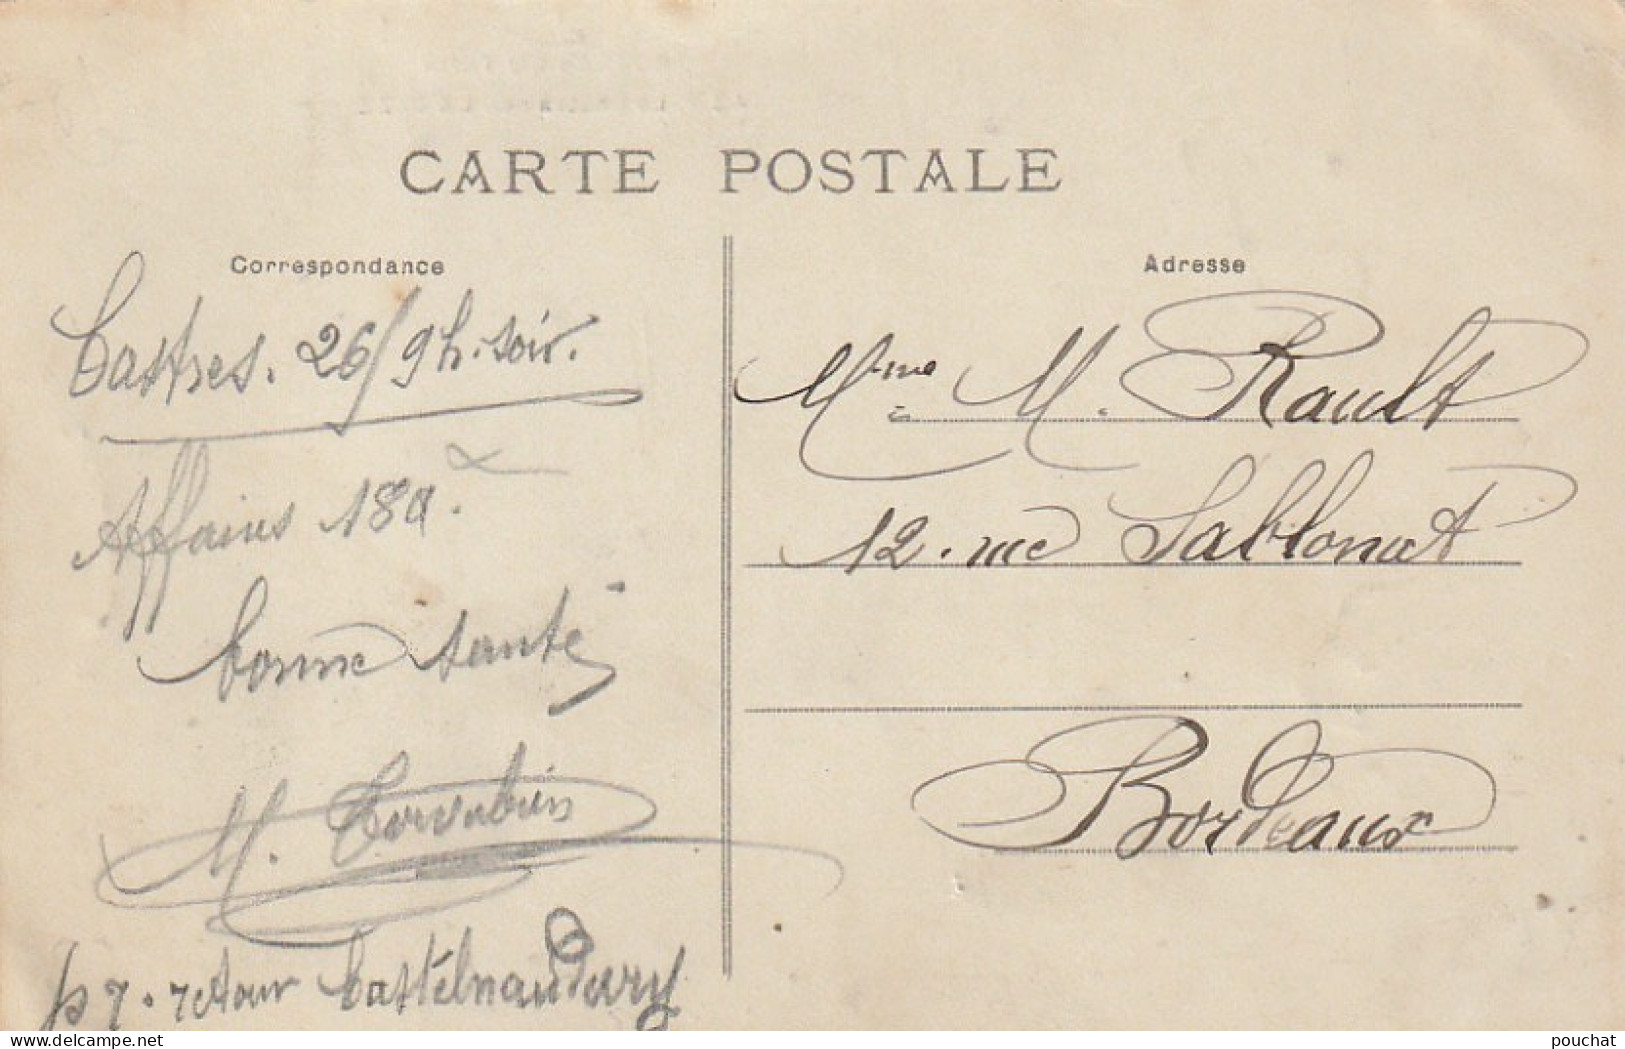 CARTE POSTALE
Correspondance
Castres. 26/9h. soir.
Affaires 180.
bonne santé
M.
retour Castelnaudary
Adresse
Mme M. Rault
12. rue Sablonat
Bordeaux
www.delcampe.net
pouchat